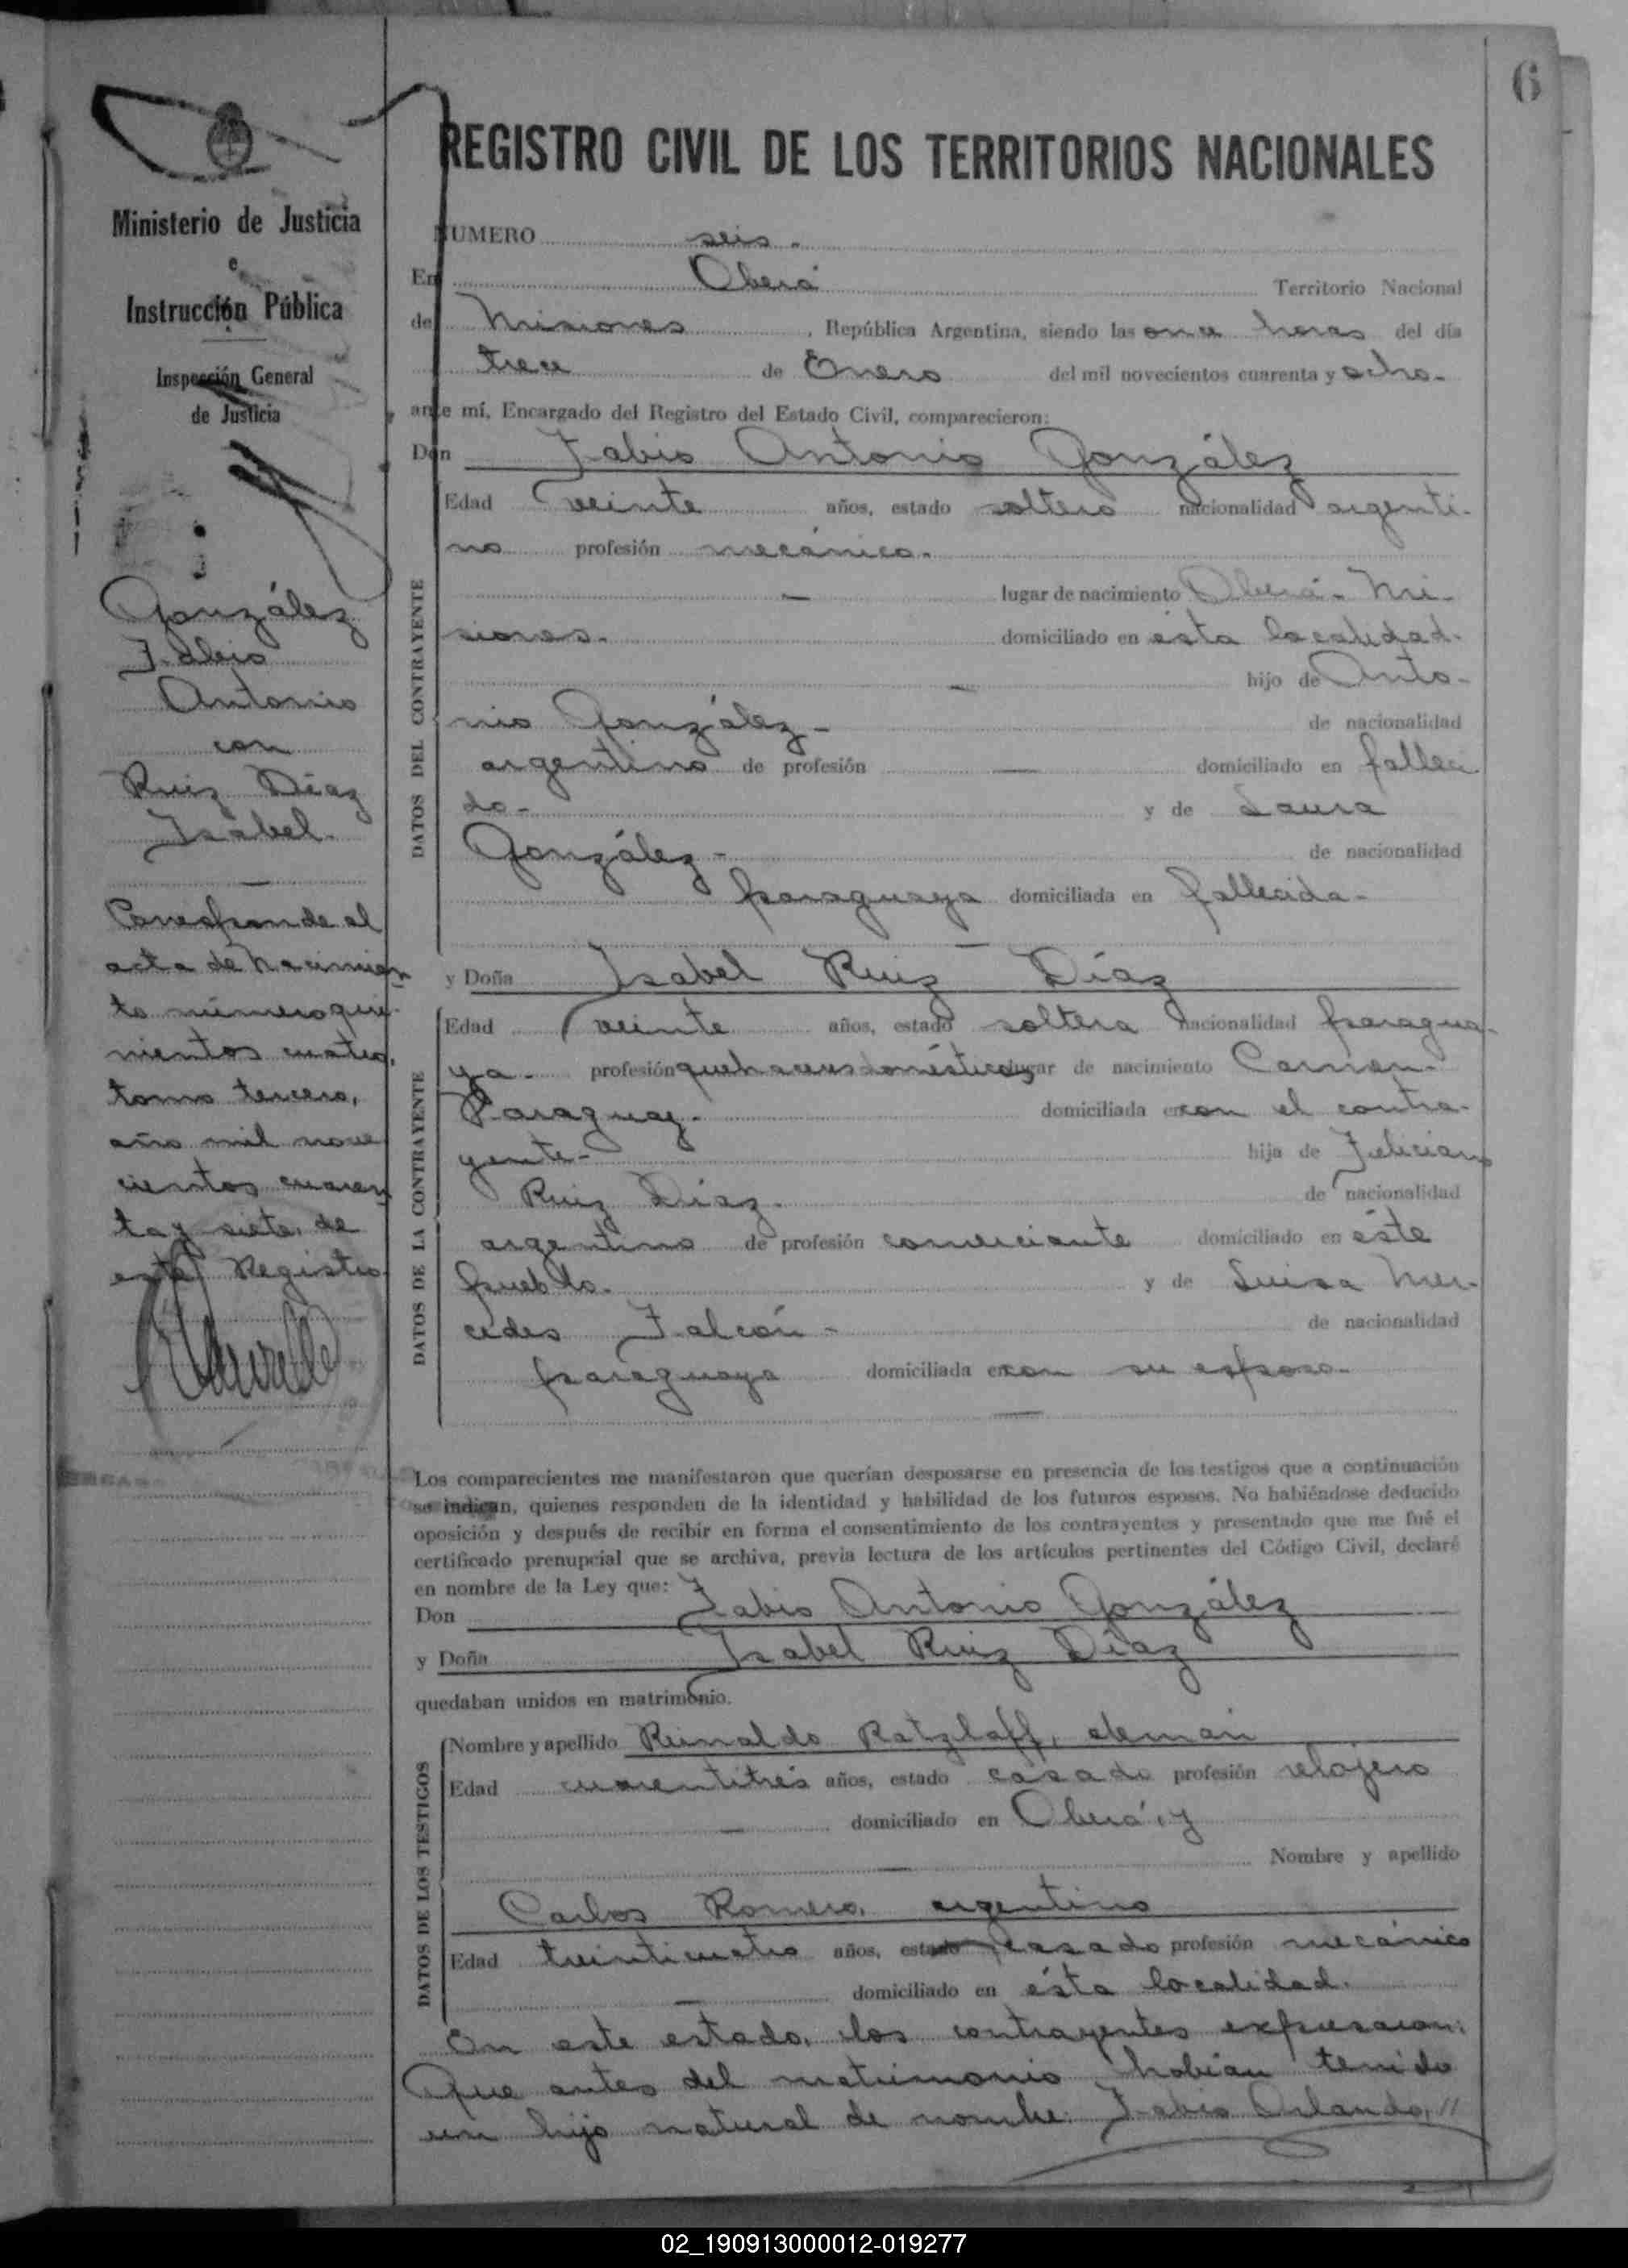 6
Ministerio de Justicia
e
Instrucción Pública
Inspección General
de Justicia
González
Fabio
Antonio
con
Ruiz Díaz
Isabel.
Corresponde al
acta de nacimien
to número qui-
nientos cuatro,
tomo tercero,
año mil nove
cientos cuaren
ta y siete, de
este Registro
REGISTRO CIVIL DE LOS TERRITORIOS NACIONALES
NUMERO seis.
En Oberá Territorio Nacional
de Misiones, República Argentina, siendo las once horas del día
trece de Enero del mil novecientos cuarenta y ocho.
ante mí, Encargado del Registro del Estado Civil, comparecieron:
Don Fabio Antonio González
DATOS DEL CONTRAYENTE
Edad veinte años, estado soltero nacionalidad argenti-
no profesión mecánico.
lugar de nacimiento Oberá- Mi-
siones. domiciliado en ésta localidad.
hijo de Anto-
nio González- de nacionalidad
argentino de profesión — domiciliado en falleci
do- y de Laura
González- de nacionalidad
paraguaya domiciliada en fallecida-
y Doña Isabel Ruiz Díaz
DATOS DE LA CONTRAYENTE
Edad veinte años, estado soltera nacionalidad paragua-
ya. profesión quehaceres domésticos lugar de nacimiento Carmen-
Paraguay. domiciliada en con el contra-
yente- hija de Feliciano
Ruiz Díaz. de nacionalidad
argentino de profesión comerciante domiciliado en éste
pueblo. y de Luisa Mer-
cedes Falcón- de nacionalidad
paraguaya domiciliada en con su esposo.
Los comparecientes me manifestaron que querían desposarse en presencia de los testigos que a continuación
se indican, quienes responden de la identidad y habilidad de los futuros esposos. No habiéndose deducido
oposición y después de recibir en forma el consentimiento de los contrayentes y presentado que me fué el
certificado prenupcial que se archiva, previa lectura de los artículos pertinentes del Código Civil, declaré
en nombre de la Ley que:
Don Fabio Antonio González
y Doña Isabel Ruiz Díaz
quedaban unidos en matrimonio.
DATOS DE LOS TESTIGOS
Nombre y apellido Reinaldo Ratzlaff, alemán
Edad cuarentitrés años, estado casado profesión relojero
domiciliado en Oberá, y
Nombre y apellido
Carlos Romero, argentino
Edad treinticuatro años, estado casado profesión mecánico
domiciliado en ésta localidad.
En este estado, los contrayentes expresaron:
Que antes del matrimonio habían tenido
un hijo natural de nombre: Fabio Orlando, //
02_190913000012-019277